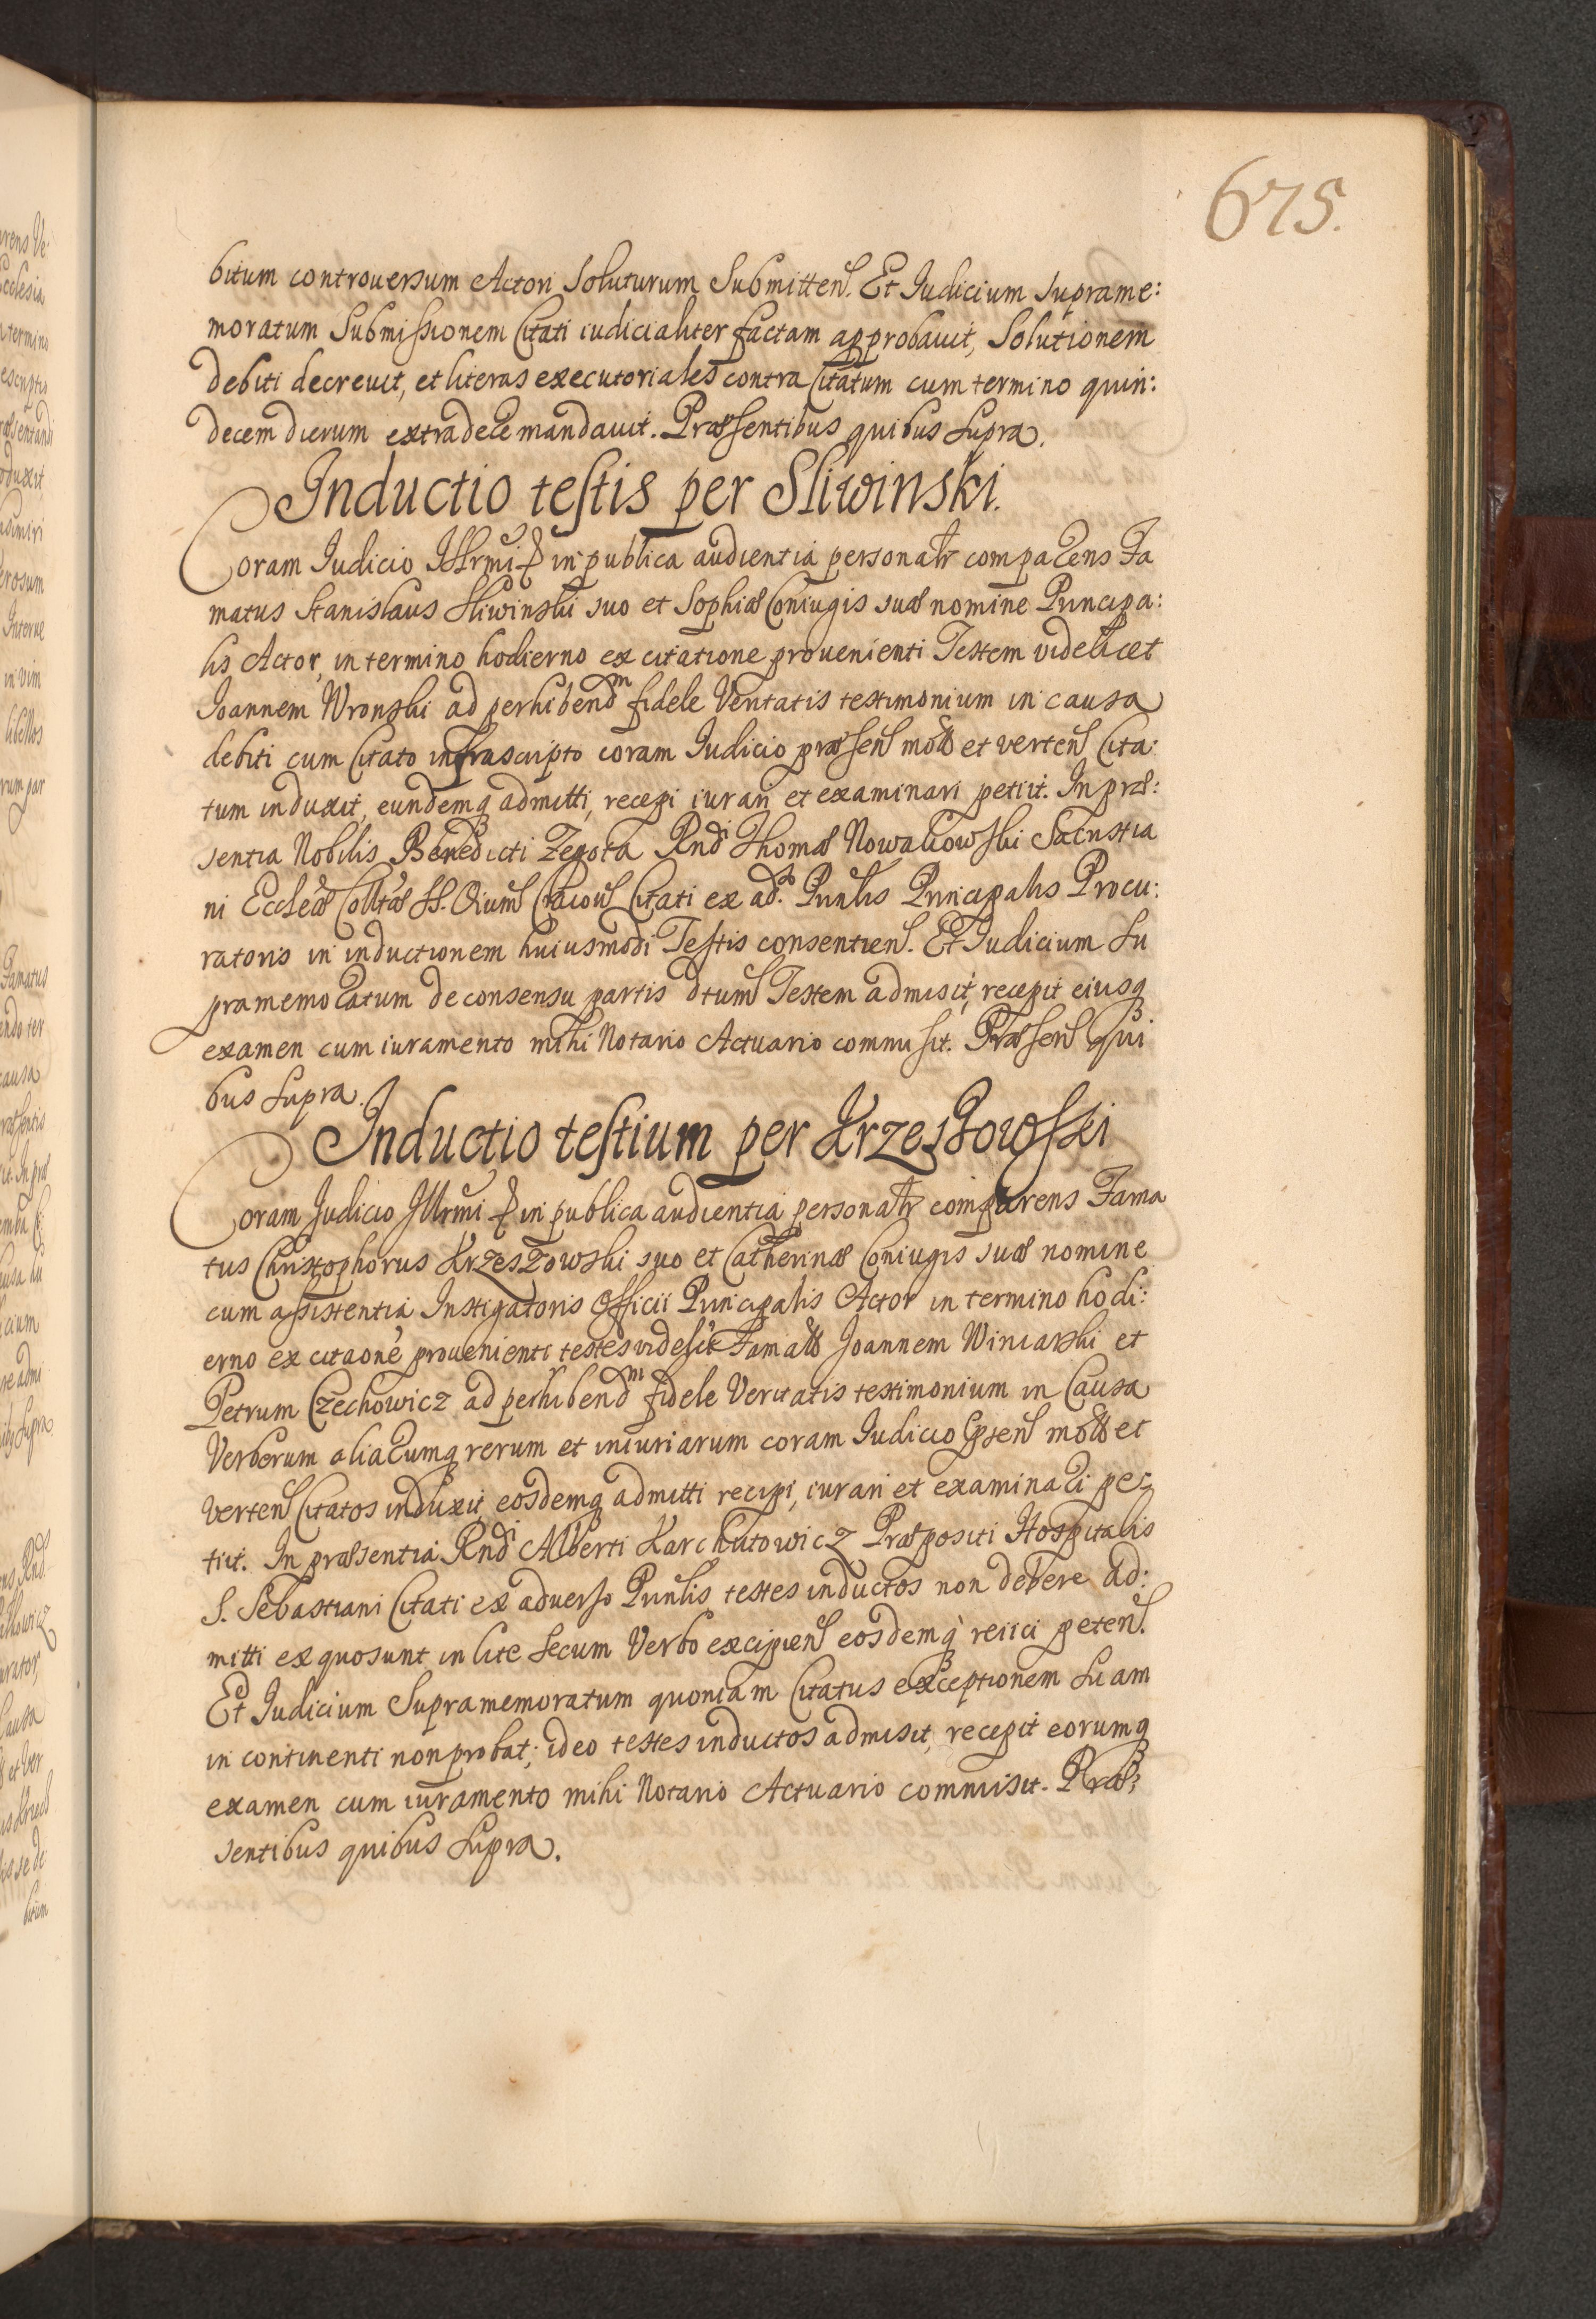 675.
bitum controuersum Actori Soluturum Submitten. Et Iudicium suprame:
moratum Submissionem Citati iudicialiter factam approbauit, Solutionem
debiti decreuit, et literas executoriales contra Citatum cum termino quin:
decem dierum extradere mandauit. Præsentibus quibus Supra.
Inductio testis per Sliwinski.
Coram Iudicio Illrmi in publica audientia personalr comparens Fa
matus Stanislaus Sliwinski suo et Sophiæ Coniugis suæ nomine Principa:
lis Actor, in termino hodierno ex citatione prouenienti Testem videlicet
Joannem Wronski ad perhibendm fidele Veritatis testimonium in causa
debiti cum Citato infrascripto coram Iudicio præsen et verten Cita:
tum induxit, eundemq admitti, recepi iurari et examinari petiit. In præ:
sentia Nobilis Benedicti Zegota Rndi Thomæ Nowakowski Sacristia
ni Eccleæ Colltæ SS. Oium Cracou Citati ex ado. Prinlis Principalis Procu:
ratoris in inductionem huiusmodi Testis consentien. Et Iudicium Su
pramemoratum de consensu partis dtum Testem admisit, recepit eiusq
examen cum iuramento mihi Notario Actuario commisit. Præsen qui
bus Supra.
Inductio testium per Krzeszowski
Coram Judicio Illrmi in publica audientia personalr comparens Fama
tus Christophorus Krzeszowski suo et Catherinæ Coniugis suæ nomine
cum assistentia Instigatoris Officii Principalis Actor in termino hodi:
erno ex citaone prouenienti testes videlict Joannem Winiarski et
Petrum Czechowicz ad perhibendm fidele Veritatis testimonium in Causa
Verborum aliarumq rerum et iniuriarum coram Iudicio et
verten Citatos induxit, eosdemq admitti recipi, iurari et examinari pe:
tiit. In præsentia Rndi Alberti Karchutowicz Præpositi Hospitalis
S. Sebastiani Citati ex aduerso Prinlis testes inductos non debere ad:
mitti ex quo sunt in lite Secum Verbo excipien eosdemq reiici peten.
Et Iudicium Supramemoratum quoniam Citatus exceptionem Suam
in continenti non probat; ideo testes inductos admisit, recepit eorumq
examen cum iuramento mihi Notario Actuario commisit. Præ:
sentibus quibus Supra.